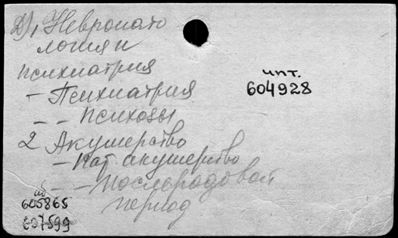 1, Невропато
логия и
психиатрия
– Психиатрия
– – психозы
2 Акушерство
– Пат акушерство
– – Послеродовой
период
чпт.
604928
605865
607599